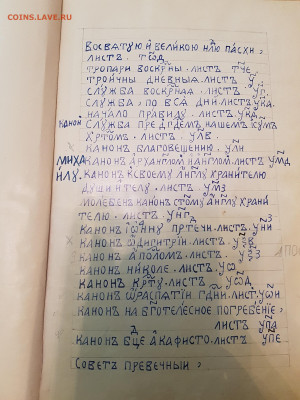 COINS.LAVE.RU
Восватую и великою нлю пасхи,
листъ. тѡд.
тропари воскрны. листъ тче
троичны дневныа. листъ. у
служба воскрнаа. листъ. уг.
служба. по вса дни. листъ ука.
начало правилу. листъ. укд
канон служба предгдемъ нашемъ
хртомъ. листъ. улв.
канонъ благовещению. улн
миха канонъ арханглом и англом. листъ. умд
илу. канонъ ксвоему англу хранителю
души и телу. листъ. умз
молебенъ канонъ стому англу храни
телю. листъ. унгд
канонъ іѡанну пртечи. листъ. уни
канонъ ѡдигитрии. листъ.
канонъ апѡлом. листъ.
канонъ николе. листъ. уѡ
канонъ крту. листъ. уѡд
канонъ ѡраспатии гдни. лист. уѡи
канонъ на бготелесное погребение,
листъ упа
канонъ бце акафисто. листъ упе
Советъ превечныи,